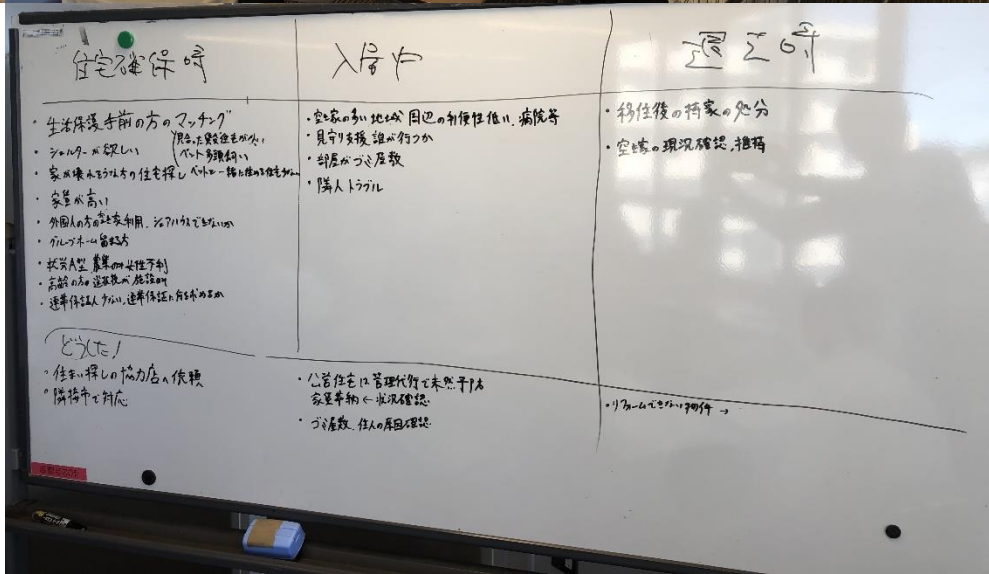 住宅確保時
・生活保護手前の方のマッチング
・シェルターが欲しい
ペット多頭飼い
・家が壊れそうな方の住宅探し ペットと一緒に住める住宅少ない
・家賃が高い
・外国人の方の空き家利用、シェアハウスできないか
・グループホーム
・就労A型 農業のみ 女性不利
・高齢の方の退院後が施設
・連帯保証人少ない、連帯保証に何を求めるか
どうした!
・住まい探しの協力店へ依頼
・隣接市で対応
入居中
・空き家の多い地域 周辺の利便性低い、病院等
・見守り支援 誰が行うか
・部屋がゴミ屋敷
・隣人トラブル
・公営住宅は管理代行で未然予防
家賃滞納 ← 状況確認
・ゴミ屋敷、住人の原因確認
退去時
・移住後の持家の処分
・空き家の現況確認、推移
・リフォームできない物件 →